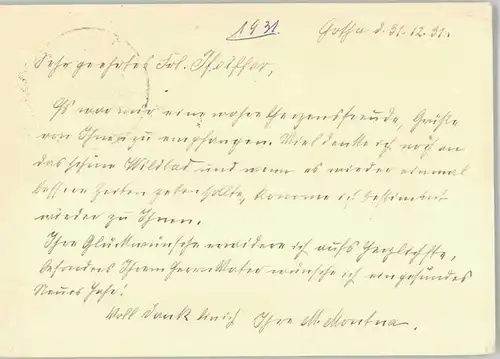 1931
Gotha d. 31.12.31.
Sehr geehrtes Frl. Pfeiffer,
Es war mir eine wahre Herzensfreude, Grüße
von Ihnen zu empfangen. Viel denke ich noch an
das schöne Wildbad und wenn es wieder einmal
bessere Zeiten geben sollte, komme ich bestimmt
wieder zu Ihnen.
Ihre Glückwünsche erwidere ich aufs Herzlichste,
besonders Ihrem Herrn Vater wünsche ich ein gesundes
Neues Jahr!
Voll Dank bin ich Ihre M. Montua.